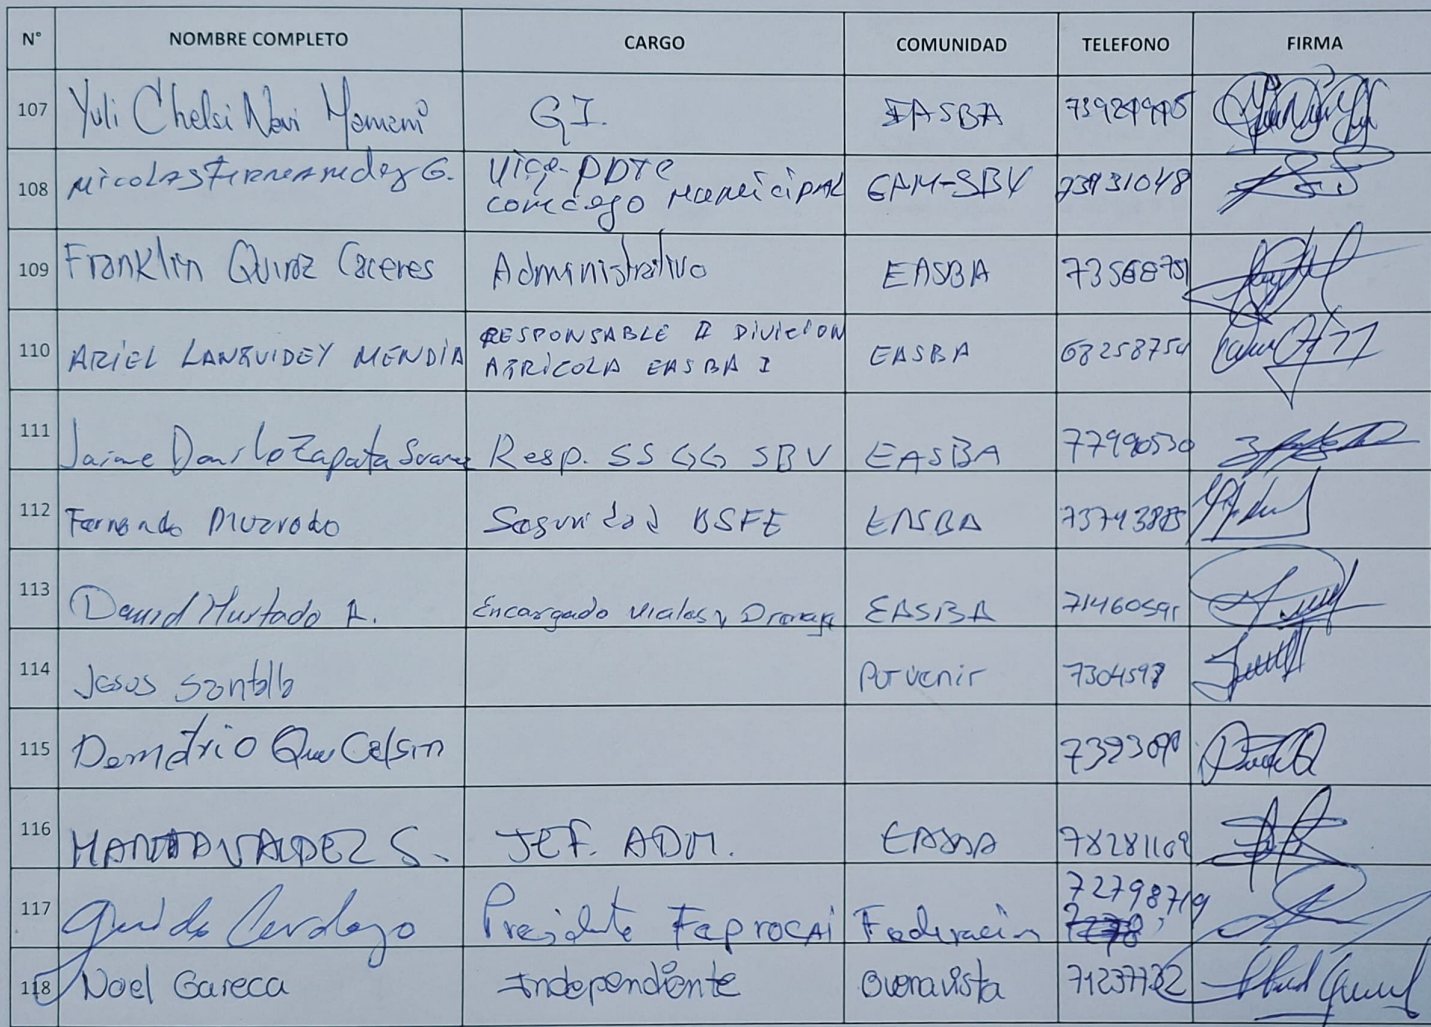 N° NOMBRE COMPLETO CARGO COMUNIDAD TELEFONO FIRMA
107 Yuli Chelsi Navi Mamani G I. EASBA
108 Nicolas Fernandez G. Vice-PDTE concego municipal GAM-SBV 73931048
109 Franklin Quiroz Caceres Administrativo EASBA
110 ARIEL LANGUIDEY MENDIA RESPONSABLE II DIVICION AGRICOLA EASBA I EASBA 68258754
111 Jaime Danilo Zapata Suarez Resp. SS GG SBV EASBA 77990530
112 Fernando Seguridad BSFE EASBA
113 David Hurtado A. Encargado viales y Drenaje EASBA 71460591
114 Jesus Porvenir
115 Demetrio
116 VALDEZ S. JEF. ADM. EASBA 78281109
117 Guido Presidente Faprocai Federacion 72798719
118 Noel Gareca Independiente Buenavista 71237732